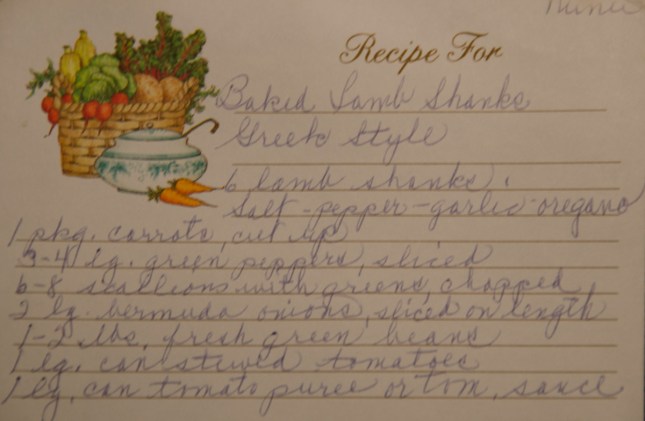 Recipe For
Baked Lamb Shanks
Greek Style
6 lamb shanks
Salt - pepper - garlic - oregano
1 pkg. carrots, cut up
3-4 lg. green peppers, sliced
6-8 scallions with greens, chopped
2 lg. bermuda onions, sliced on length
1-2 lbs. fresh green beans
1 lg. can stewed tomatoes
1 lg. can tomato puree or tom. sauce